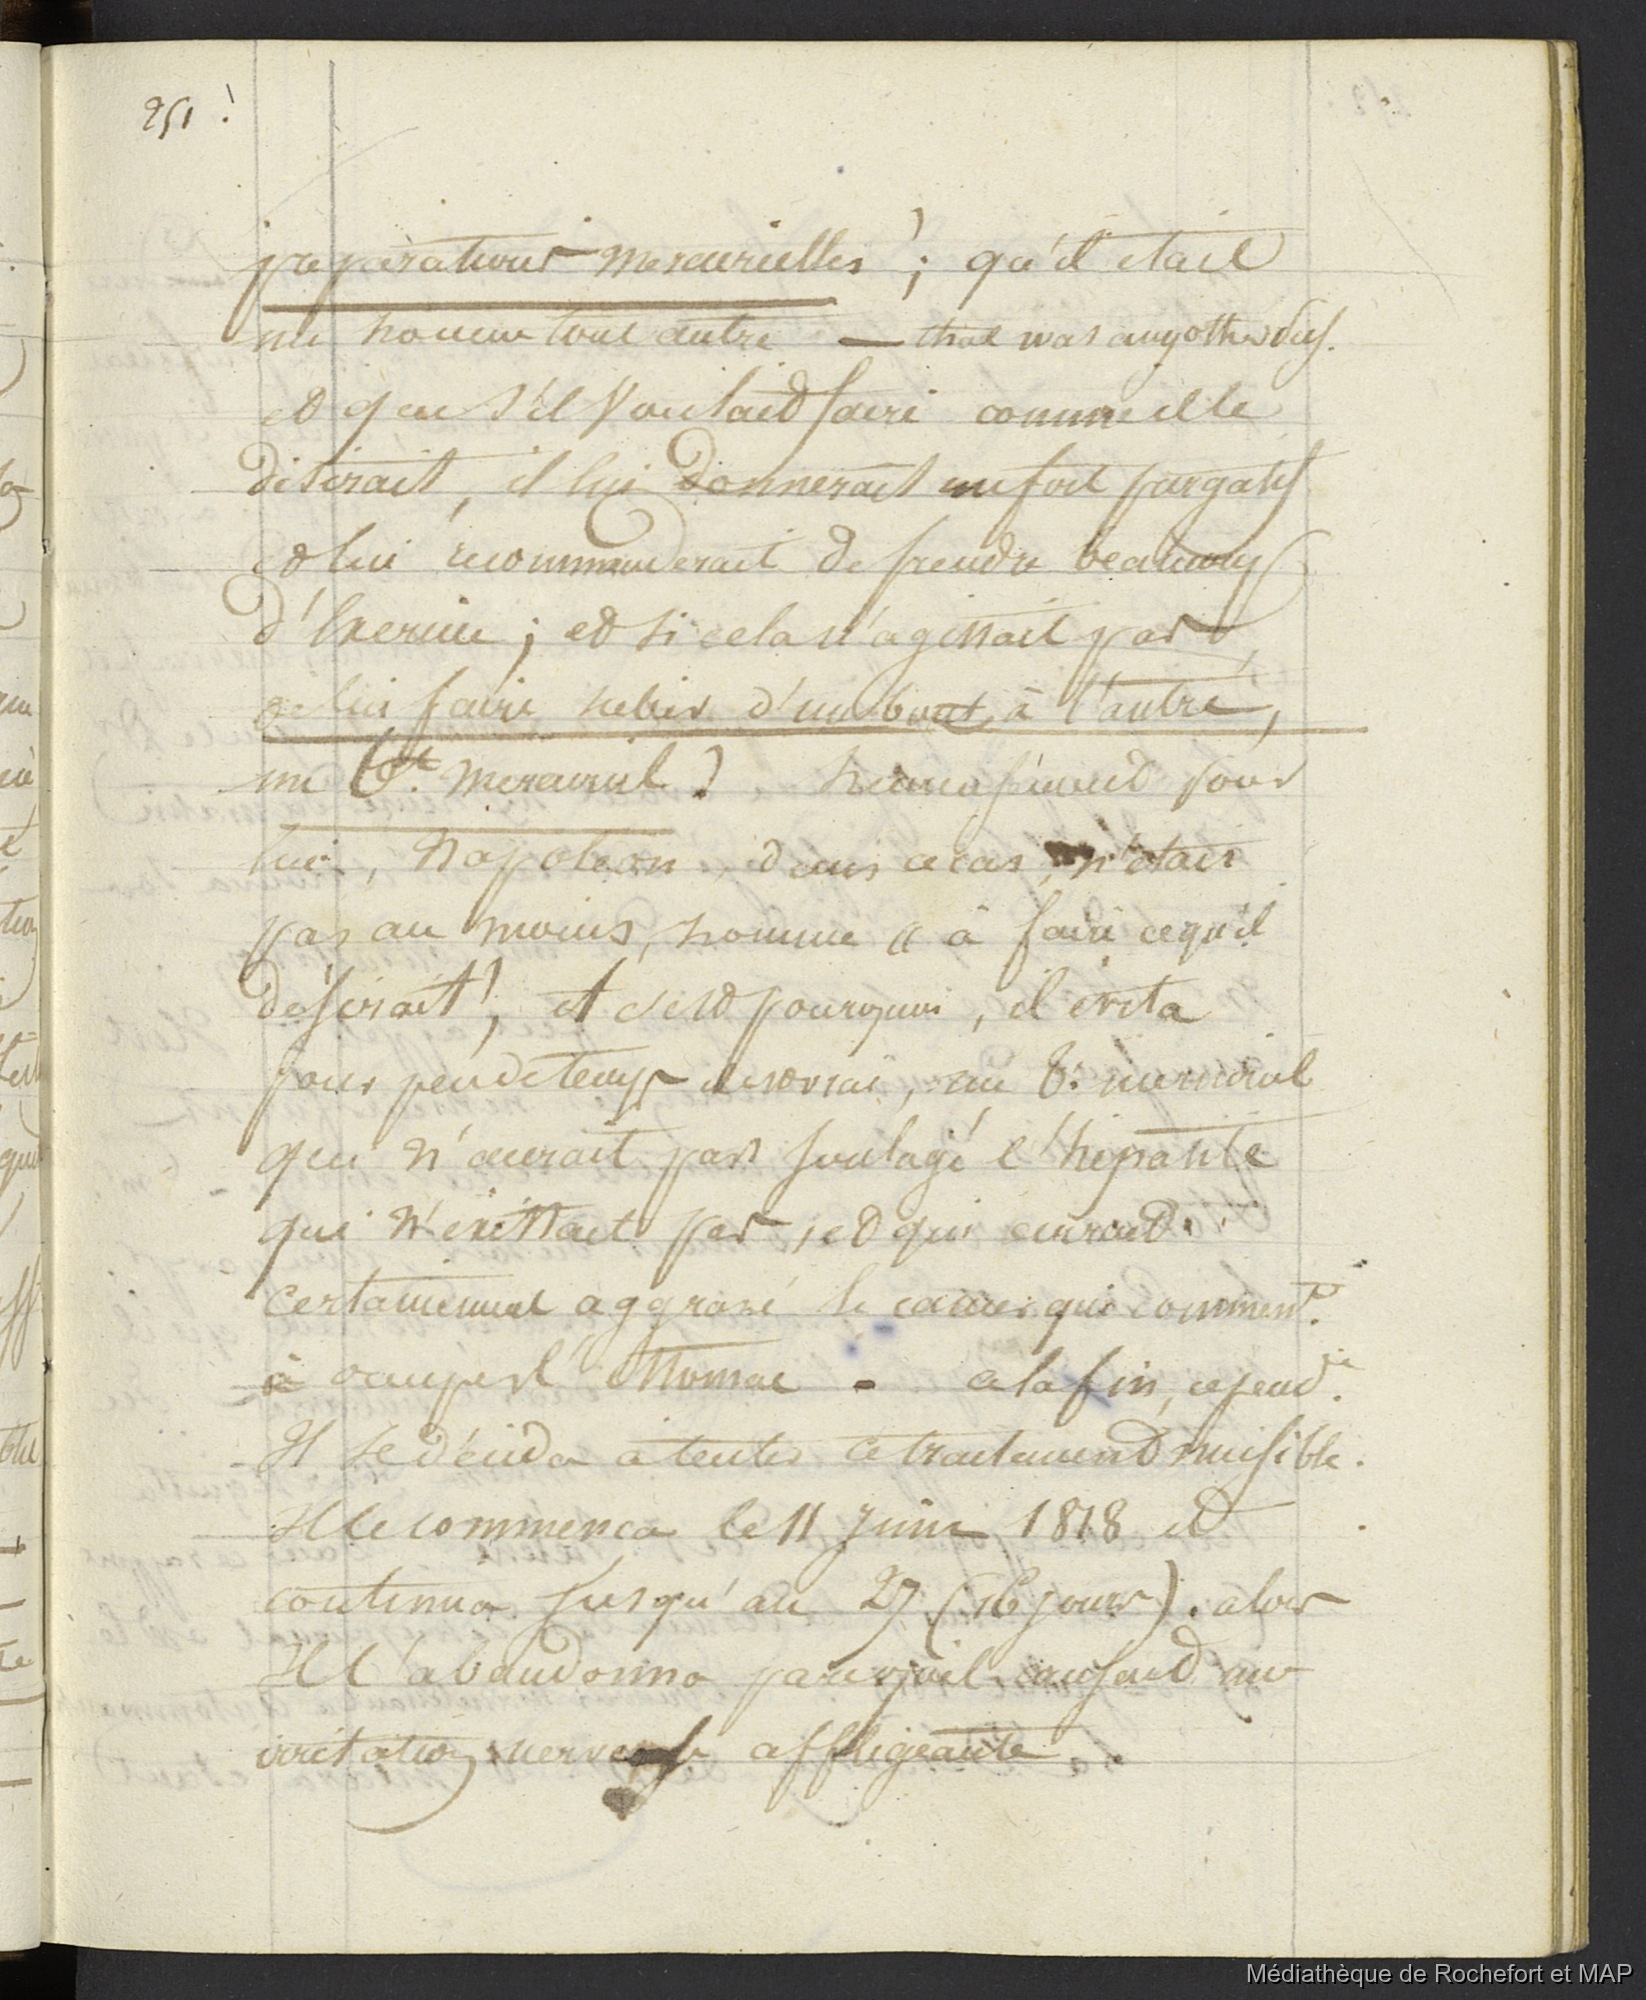 251 !
preparations mercurielles ! ; qu'il etait
un homme tout autre — that was any other
et que s'il voulait faire comme elle
désirait, il lui donnerait un fort purgatif
et lui recommanderait de prendre beaucoup
d'Exercice ; et si cela n'agissait pas
de lui faire subir d'un bout à l'autre,
un tt. mercuriel ! heureusement pour
lui, Napoléon, dans ce cas, n'etait
pas au moins, homme « à faire ce qu'il
désirait !, et c'est pourquoi, il évita
pour peu de temps il est vrai, un t. mercuriel
qui n'aurait pas soulagé l'hépatite
qui n'existait pas, et qui aurait
certainement aggravé le cancer qui commenç.
à occuper l'estomac - a la fin, cepend.
Il se décida à tenter ce traitement nuisible.
Il le commença le 11 Juin 1818 et
continua jusqu'au 27 (16 jours). alors
Il l'abandonna parcequ'il causait une
irritation nerveuse affligeante
Médiathèque de Rochefort et MAP